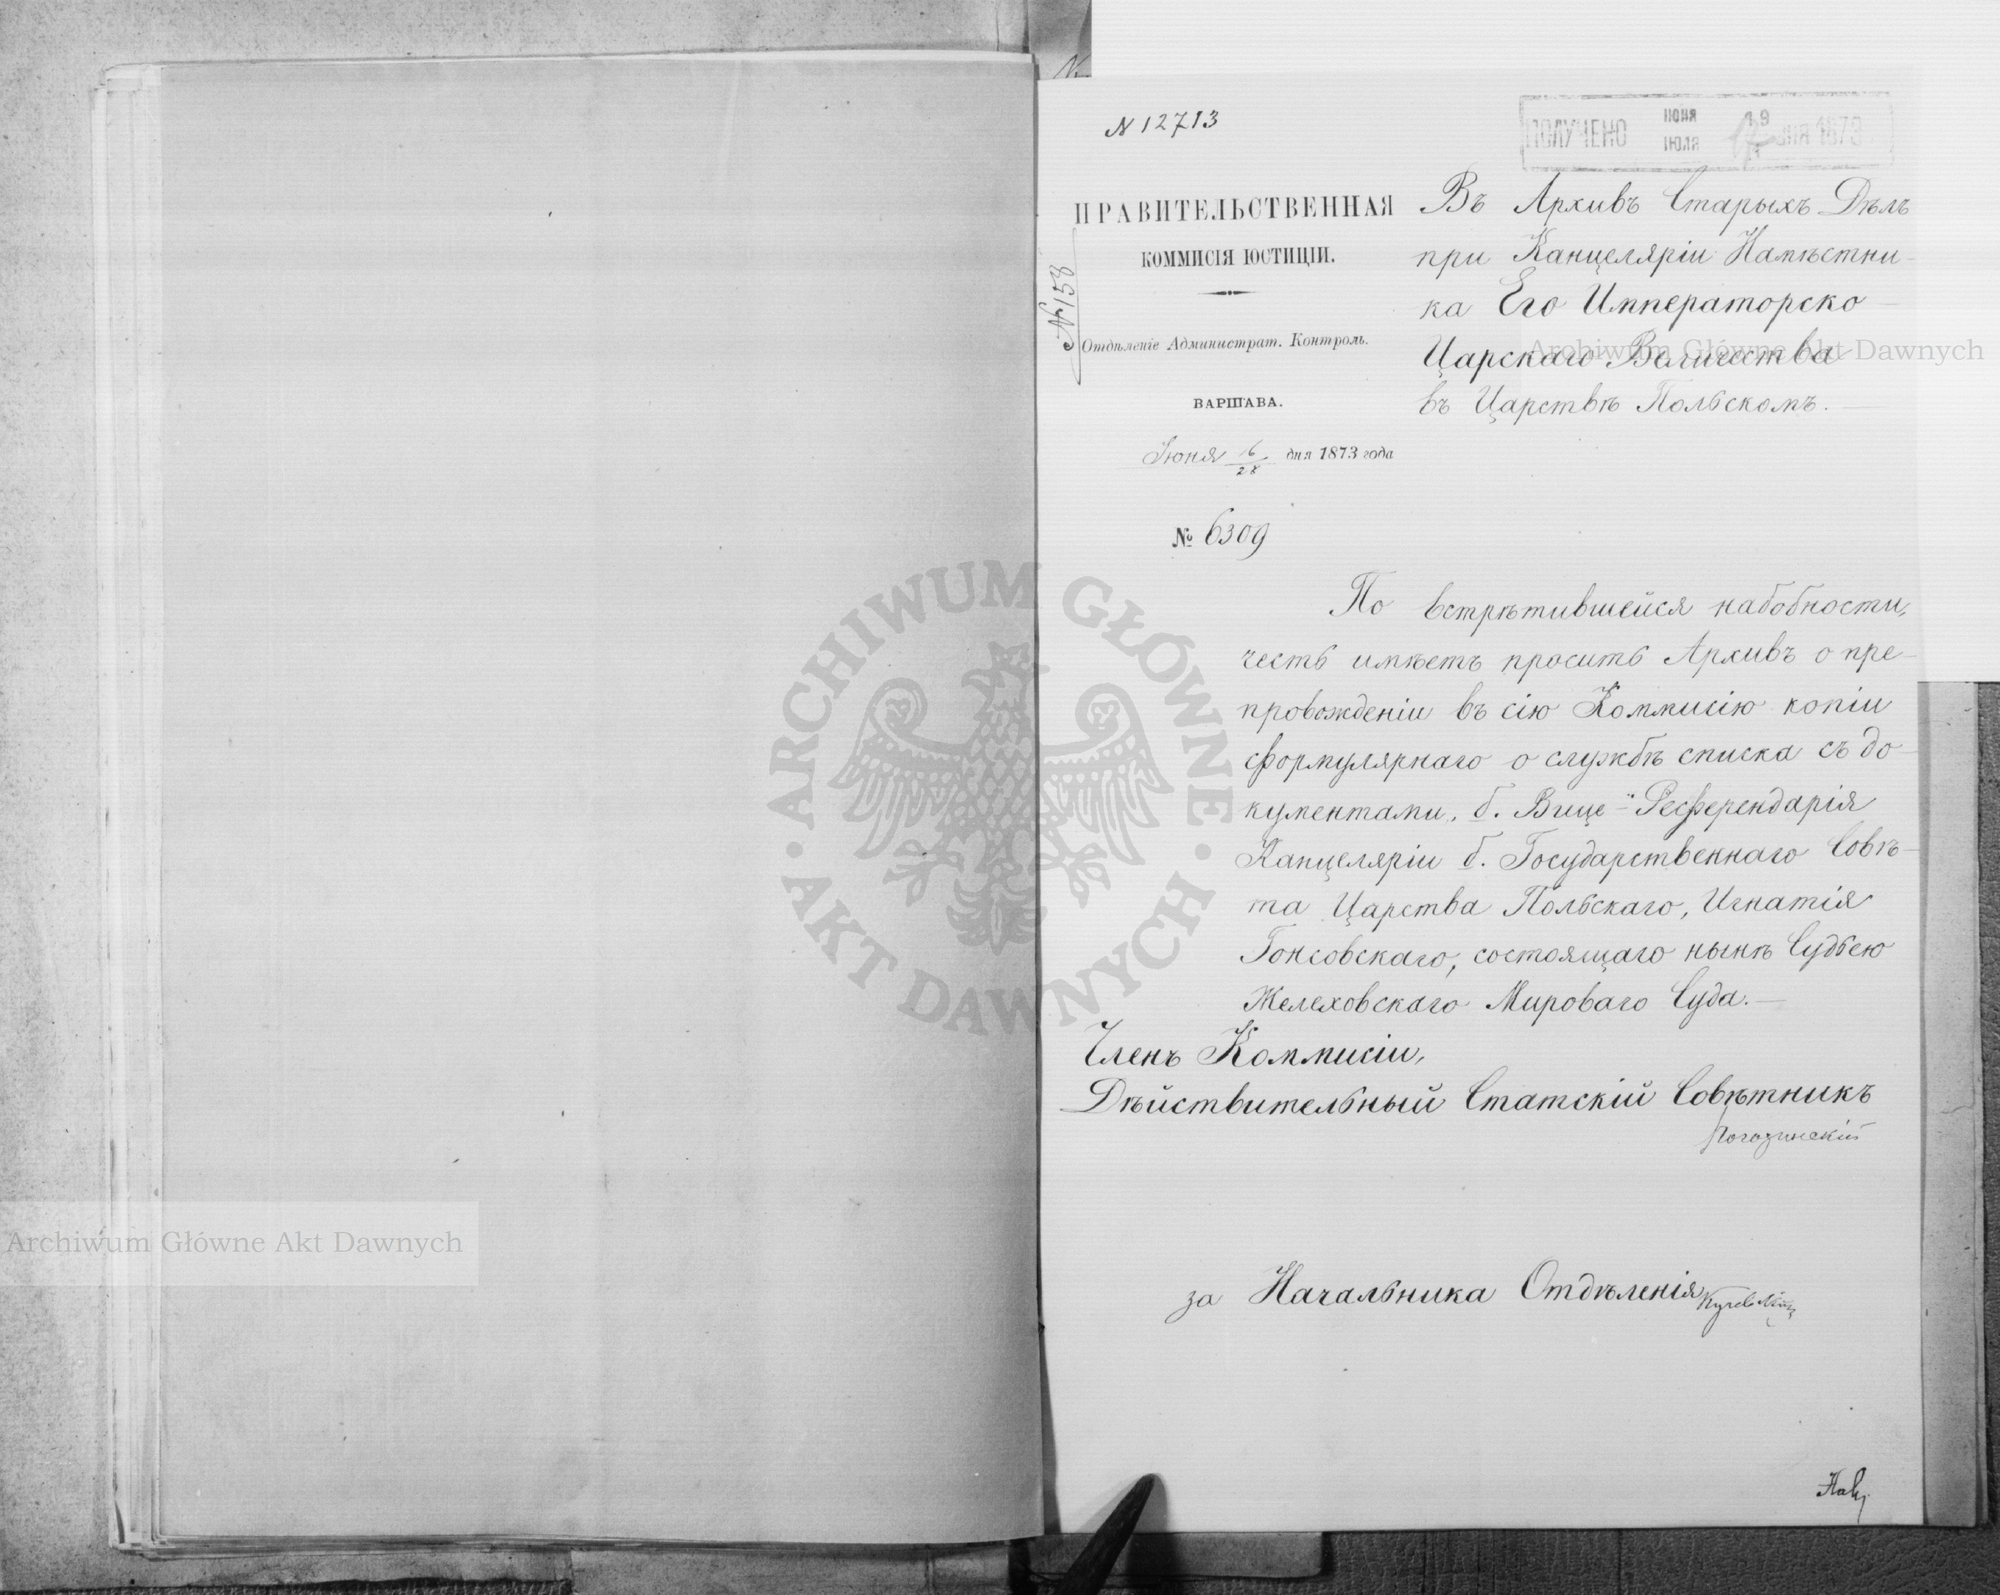 N 12713
ПОЛУЧЕНО
ІЮНЯ 19
ІЮЛЯ 1 ДНЯ 1873
ПРАВИТЕЛЬСТВЕННАЯ
КОММИСІЯ ЮСТИЦІИ.
№ 158
Отдѣленіе Администрат. Контроль.
ВАРШАВА.
Іюня 16/28 дня 1873 года
№ 6309
Въ Архивъ Старыхъ Дѣлъ
при Канцеляріи Намѣстни-
ка Его Императорско
Царскаго Величества
въ Царствѣ Польскомъ.
По встрѣтившейся надобности,
честь имѣетъ просить Архивъ о пре-
провожденіи въ сію Коммисію копіи
формулярнаго о службѣ списка съ до-
кументами, б. Вице-Референдарія
Канцеляріи б. Государственнаго Совѣ-
та Царства Польскаго, Игнатія
Гонсовскаго, состоящаго нынѣ Судьею
Желеховскаго Мироваго Суда.
Членъ Коммисіи,
Дѣйствительный Статскій Совѣтникъ
за Начальника Отдѣленія
ARCHIWUM GŁÓWNE AKT DAWNYCH
Archiwum Główne Akt Dawnych
Archiwum Główne Akt Dawnych